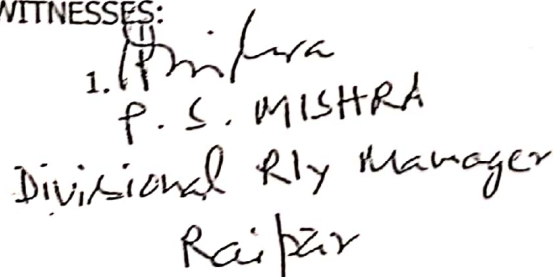 WITNESSES:
1. PMishra
P. S. MISHRA
Divisional Rly Manager
Raipur